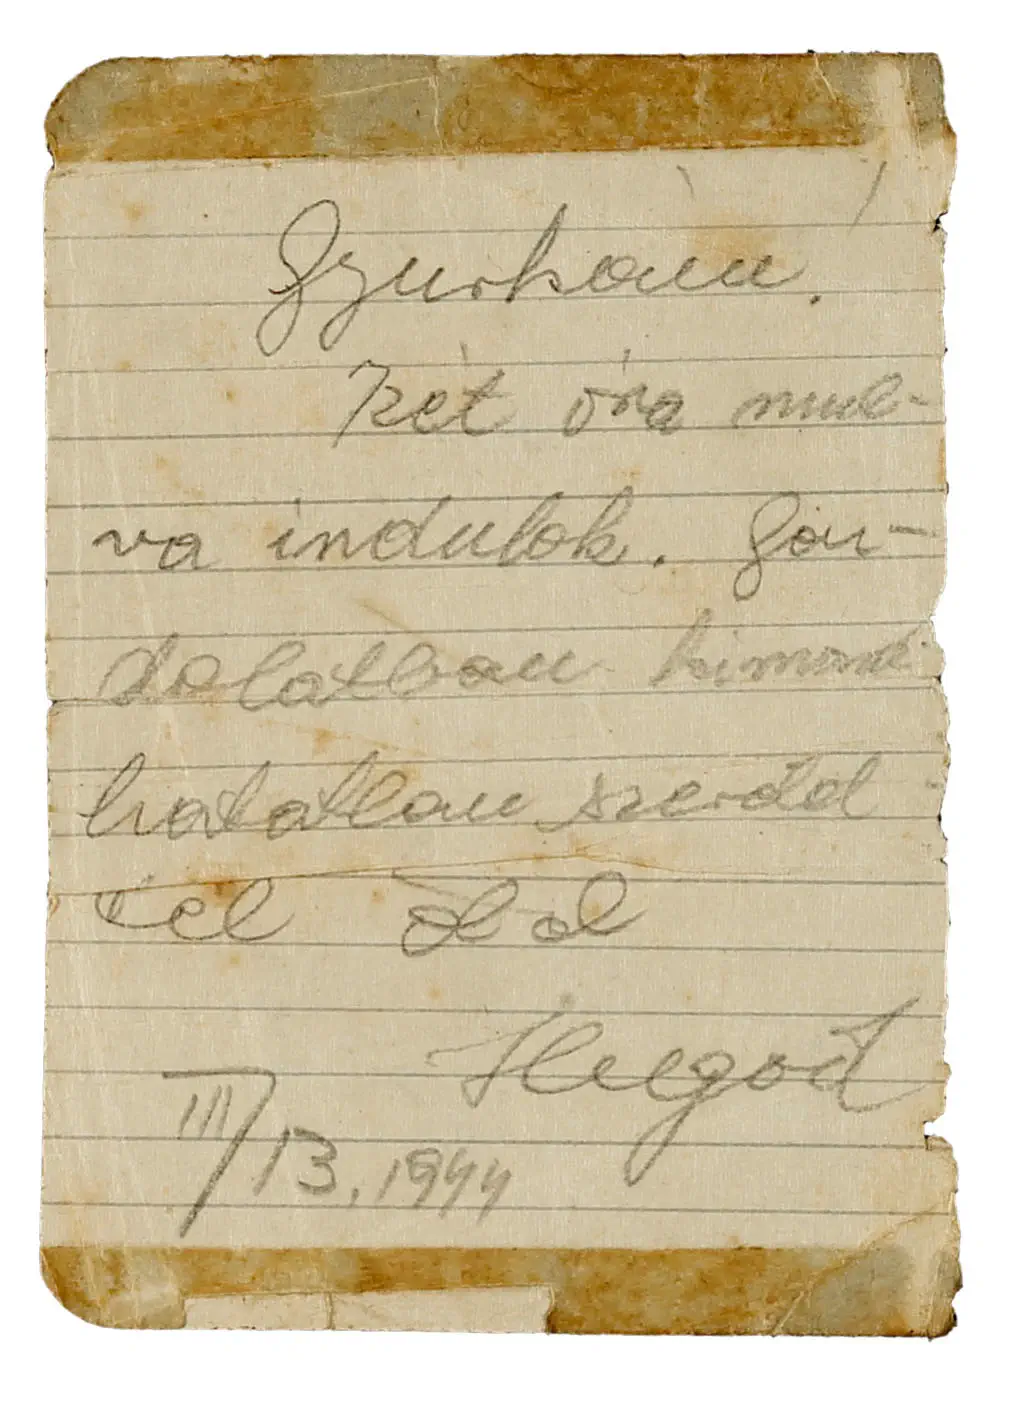 Gyurkám!
Két óra mul-
va indulok. Gon-
dolatban kimond-
hatatlan szeretet-
tel ölel
Hugod
III/13, 1944